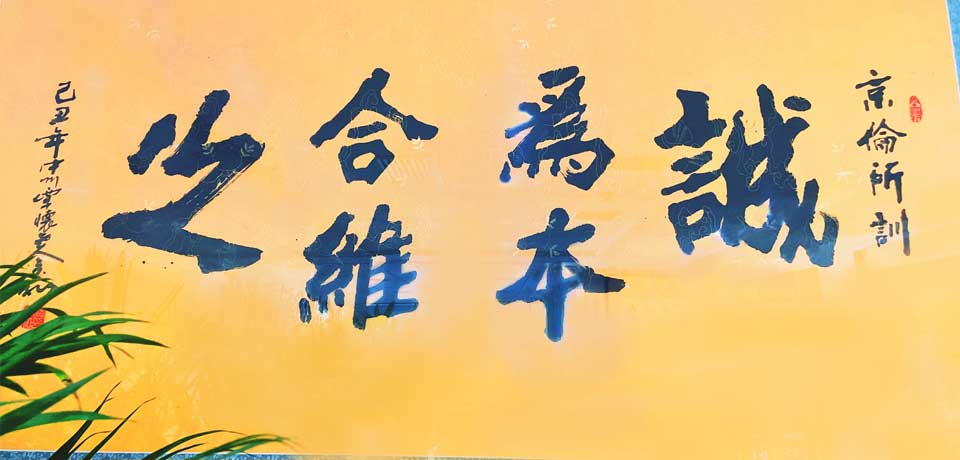 京倫所訓
誠
為本
合維
之
己丑年